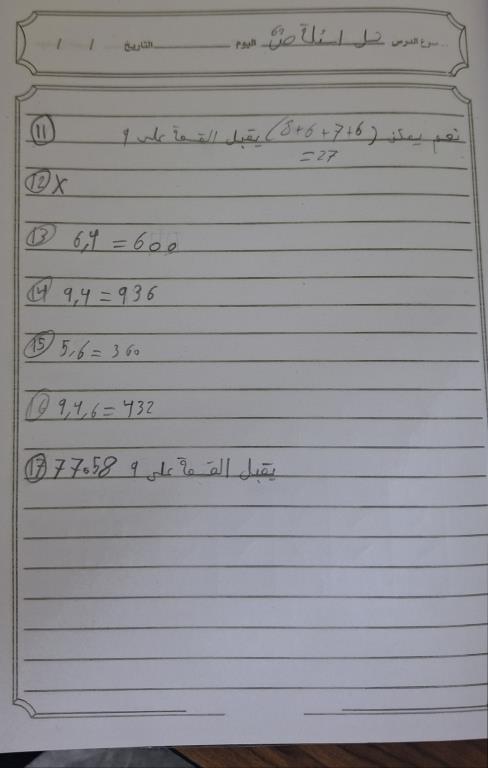 موضوع الدرس حل اسئلة ص اليوم التاريخ / /
11 نعم يمكن (8+6+7+6) يقبل القسمة على 9
=27
12 X
13 6,4 = 600
14 9,4 = 936
15 5,6 = 360
16 9,4,6 = 432
17 77058 يقبل القسمة على 9